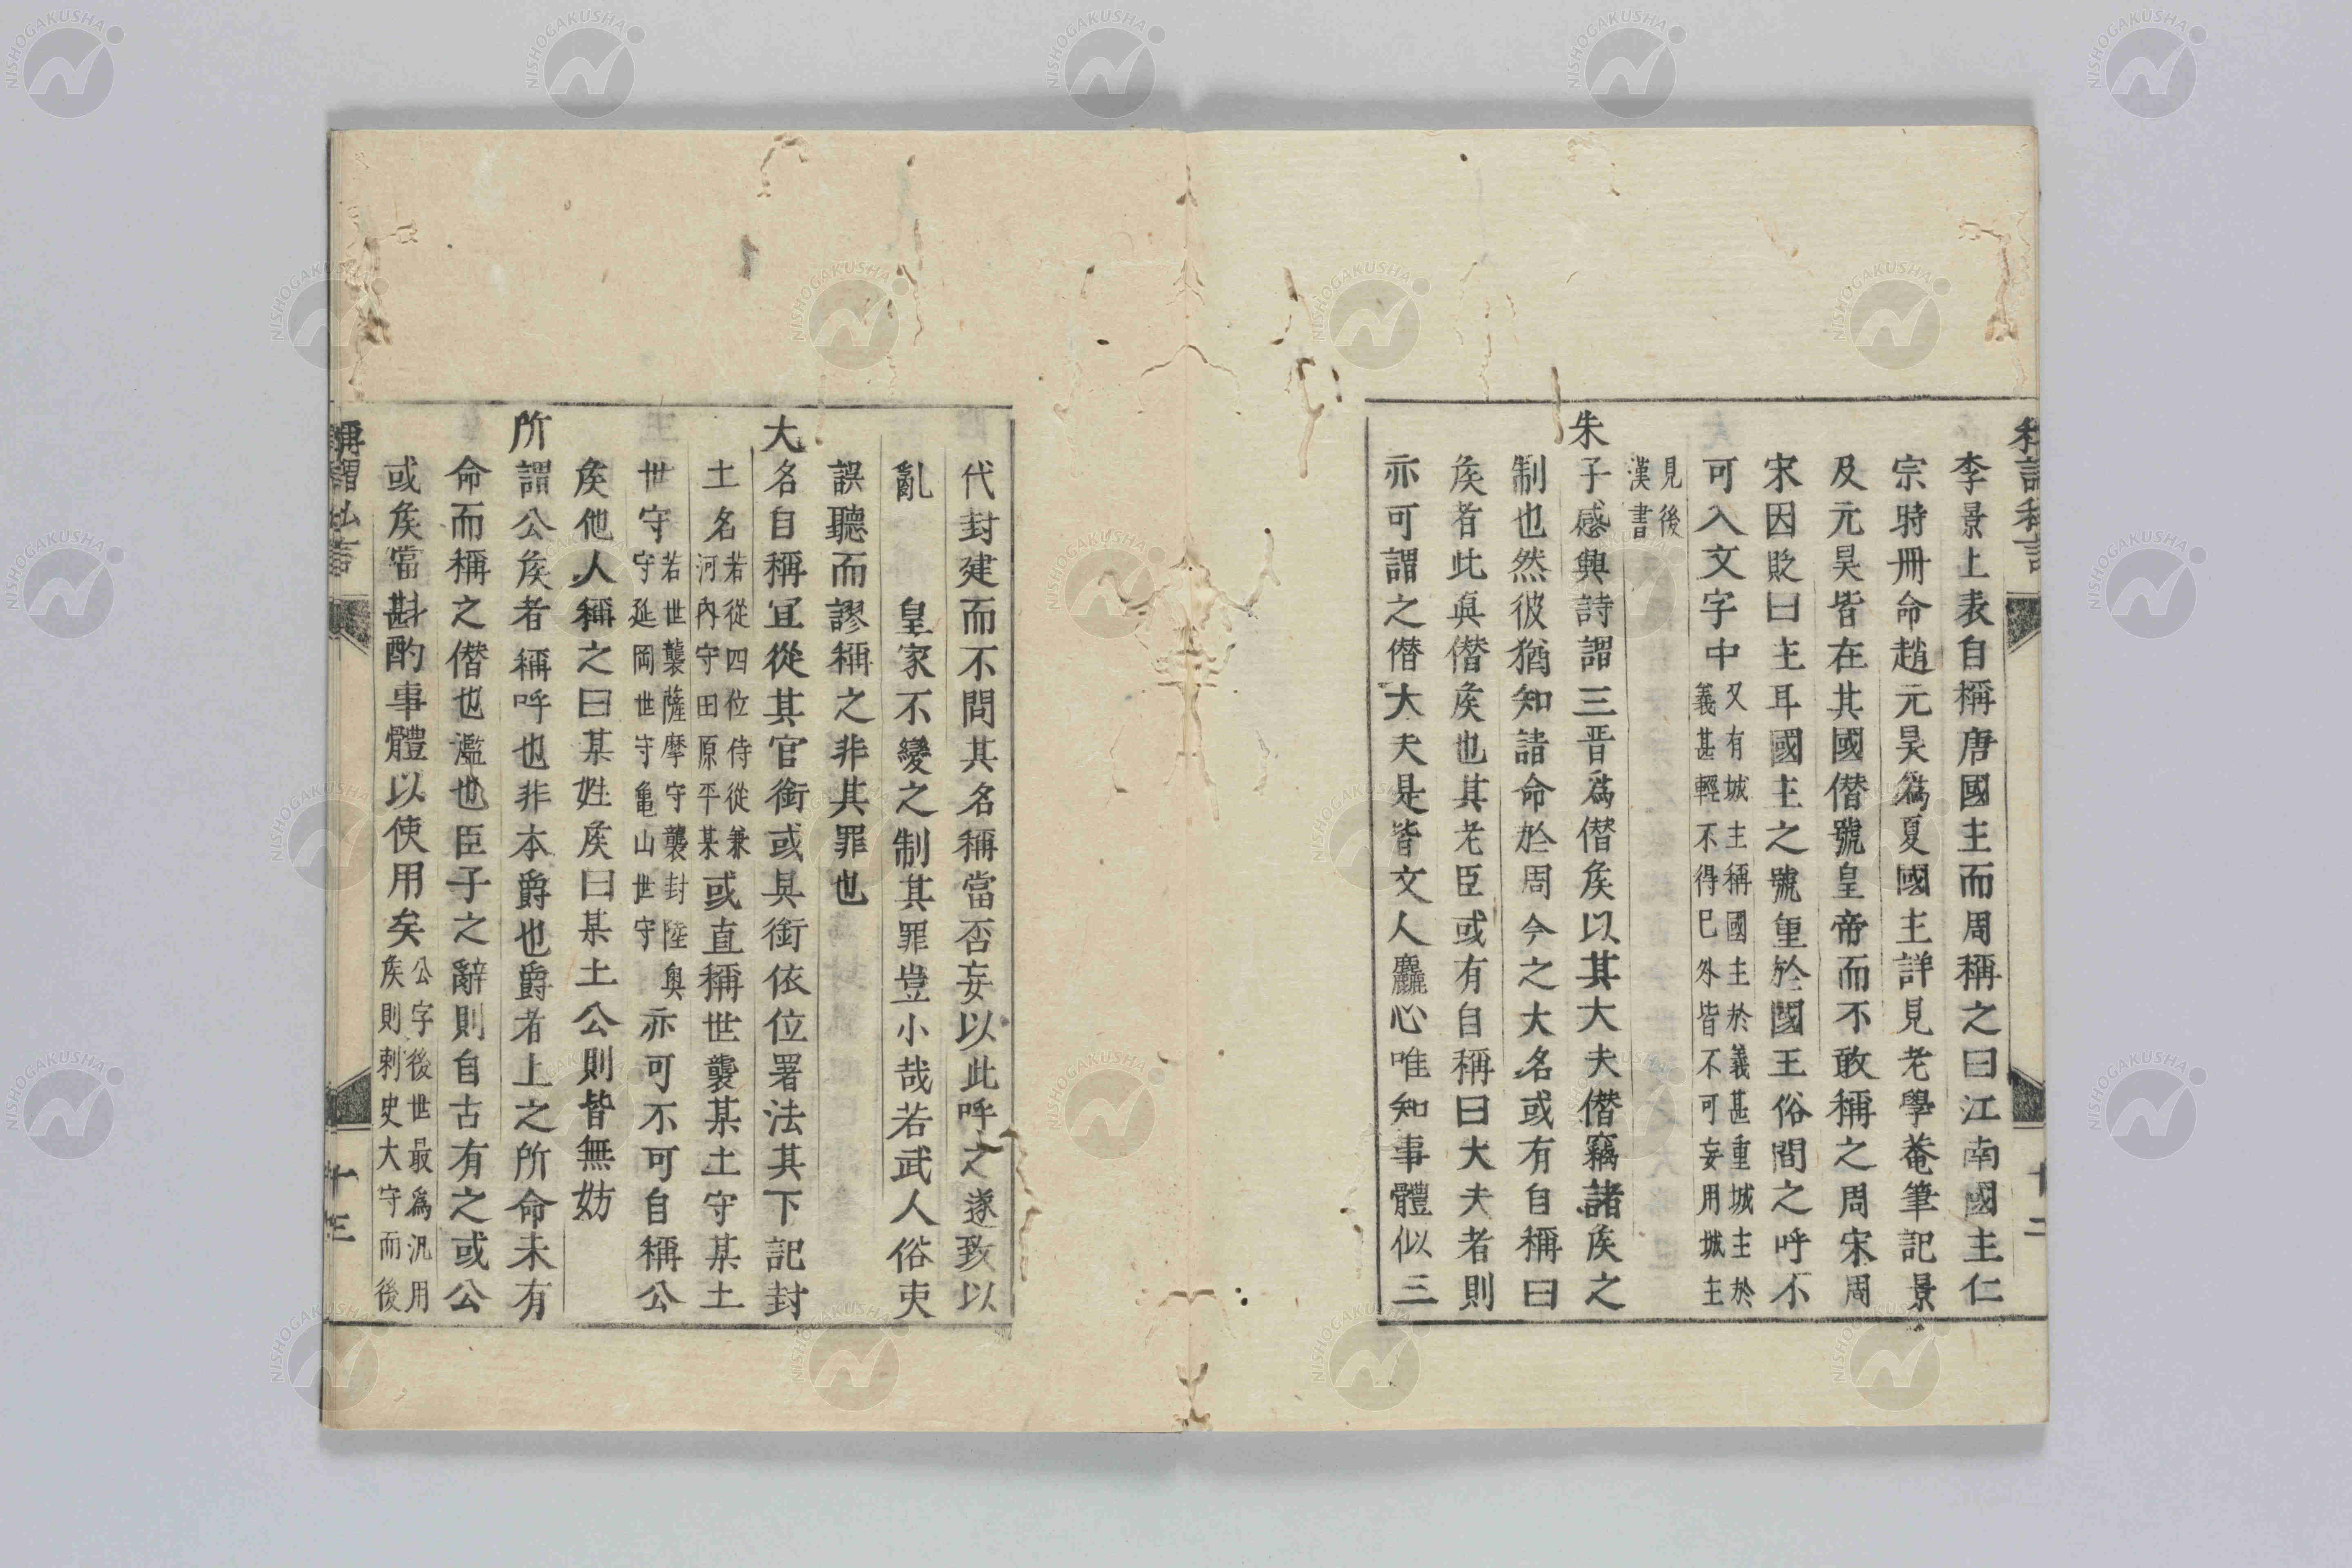 李景上表自稱唐國主而周稱之曰江南國主仁
宗時冊命趙元昊爲夏國主詳見老學菴筆記景
及元昊皆在其國僭號皇帝而不敢稱之周宋周
宋因貶曰主耳國主之號重於國王俗間之呼不
可入文字中又有城主稱國主於義甚重城主於
義甚輕不得已外皆不可妄用城主
見後
漢書
朱子感興詩謂三晋爲僭矦以其大夫僭竊諸矦之
制也然彼猶知請命於周今之大名或有自稱曰
矦者此眞僭矦也其老臣或有自稱曰大夫者則
亦可謂之僭大夫是皆文人麤心唯知事體似三
代封建而不問其名稱當否妄以此呼之遂致以
亂　皇家不變之制其罪豈小哉若武人俗吏
誤聽而謬稱之非其罪也
大名自稱宜從其官銜或具銜依位署法其下記封
土名若從四位侍從兼
河內守田原平某或直稱世襲某土守某土
世守若世襲薩摩守襲封陸奥
守延岡世守亀山世守亦可不可自稱公
矦他人稱之曰某姓矦曰某土公則皆無妨
所謂公矦者稱呼也非本爵也爵者上之所命未有
命而稱之僭也濫也臣子之辭則自古有之或公
或矦當斟酌事體以使用矣公字後世最爲汎用
矦則刺史大守而後
稱謂私言
十三
NISHOGAKUSHA